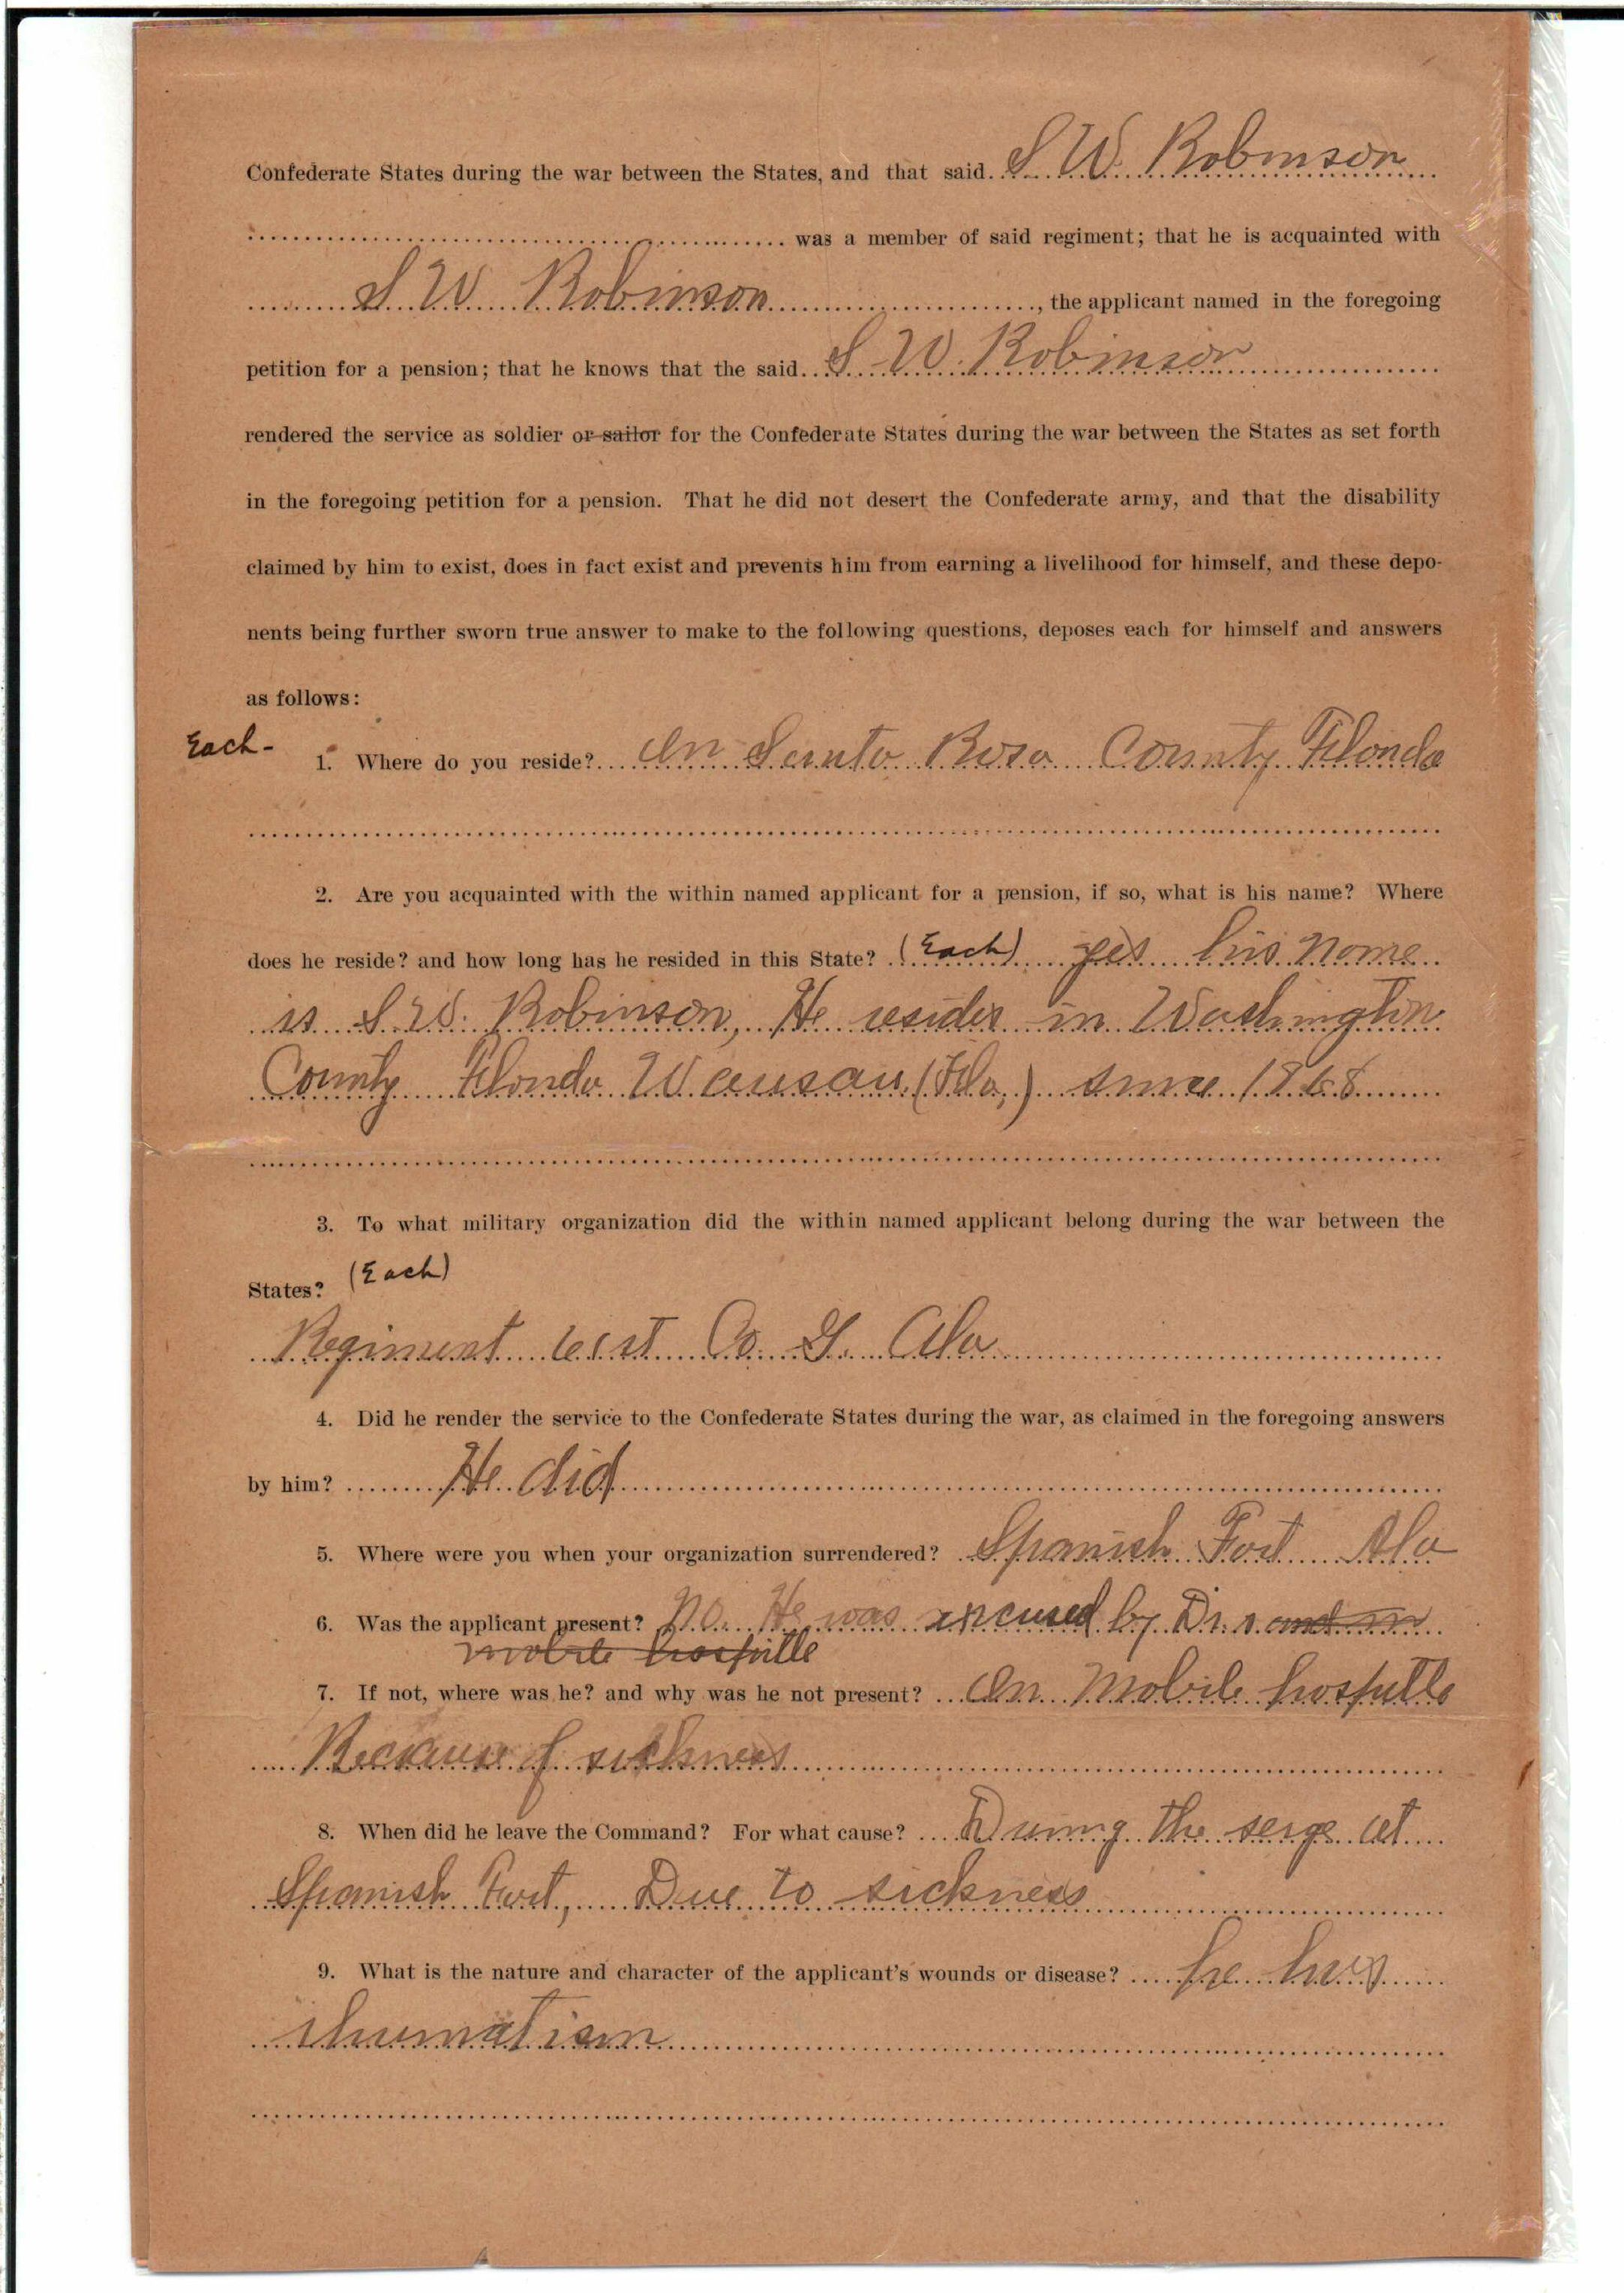 Confederate States during the war between the States, and that said S W. Robinson
was a member of said regiment; that he is acquainted with
S. W. Robinson, the applicant named in the foregoing
petition for a pension; that he knows that the said S. W. Robinson
rendered the service as soldier or sailor for the Confederate States during the war between the States as set forth
in the foregoing petition for a pension. That he did not desert the Confederate army, and that the disability
claimed by him to exist, does in fact exist and prevents him from earning a livelihood for himself, and these depo-
nents being further sworn true answer to make to the following questions, deposes each for himself and answers
as follows:
Each- 1. Where do you reside? In Santa Rosa County Florida
2. Are you acquainted with the within named applicant for a pension, if so, what is his name? Where
does he reside? and how long has he resided in this State? (Each) yes his name
is S. W. Robinson, He resides in Washington
County Florida Wausau (Fla,) since 1868
3. To what military organization did the within named applicant belong during the war between the
States? (Each)
Regiment 61st Co. G. Ala
4. Did he render the service to the Confederate States during the war, as claimed in the foregoing answers
by him? He did
5. Where were you when your organization surrendered? Spanish Fort Ala
6. Was the applicant present? No. He was excused by Dr. and in
mobile hospitle
7. If not, where was he? and why was he not present? In Mobile hospitle
Because of sickness
8. When did he leave the Command? For what cause? During the serge at
Spanish Fort, Due to sickness
9. What is the nature and character of the applicant's wounds or disease? he has
rhumatism